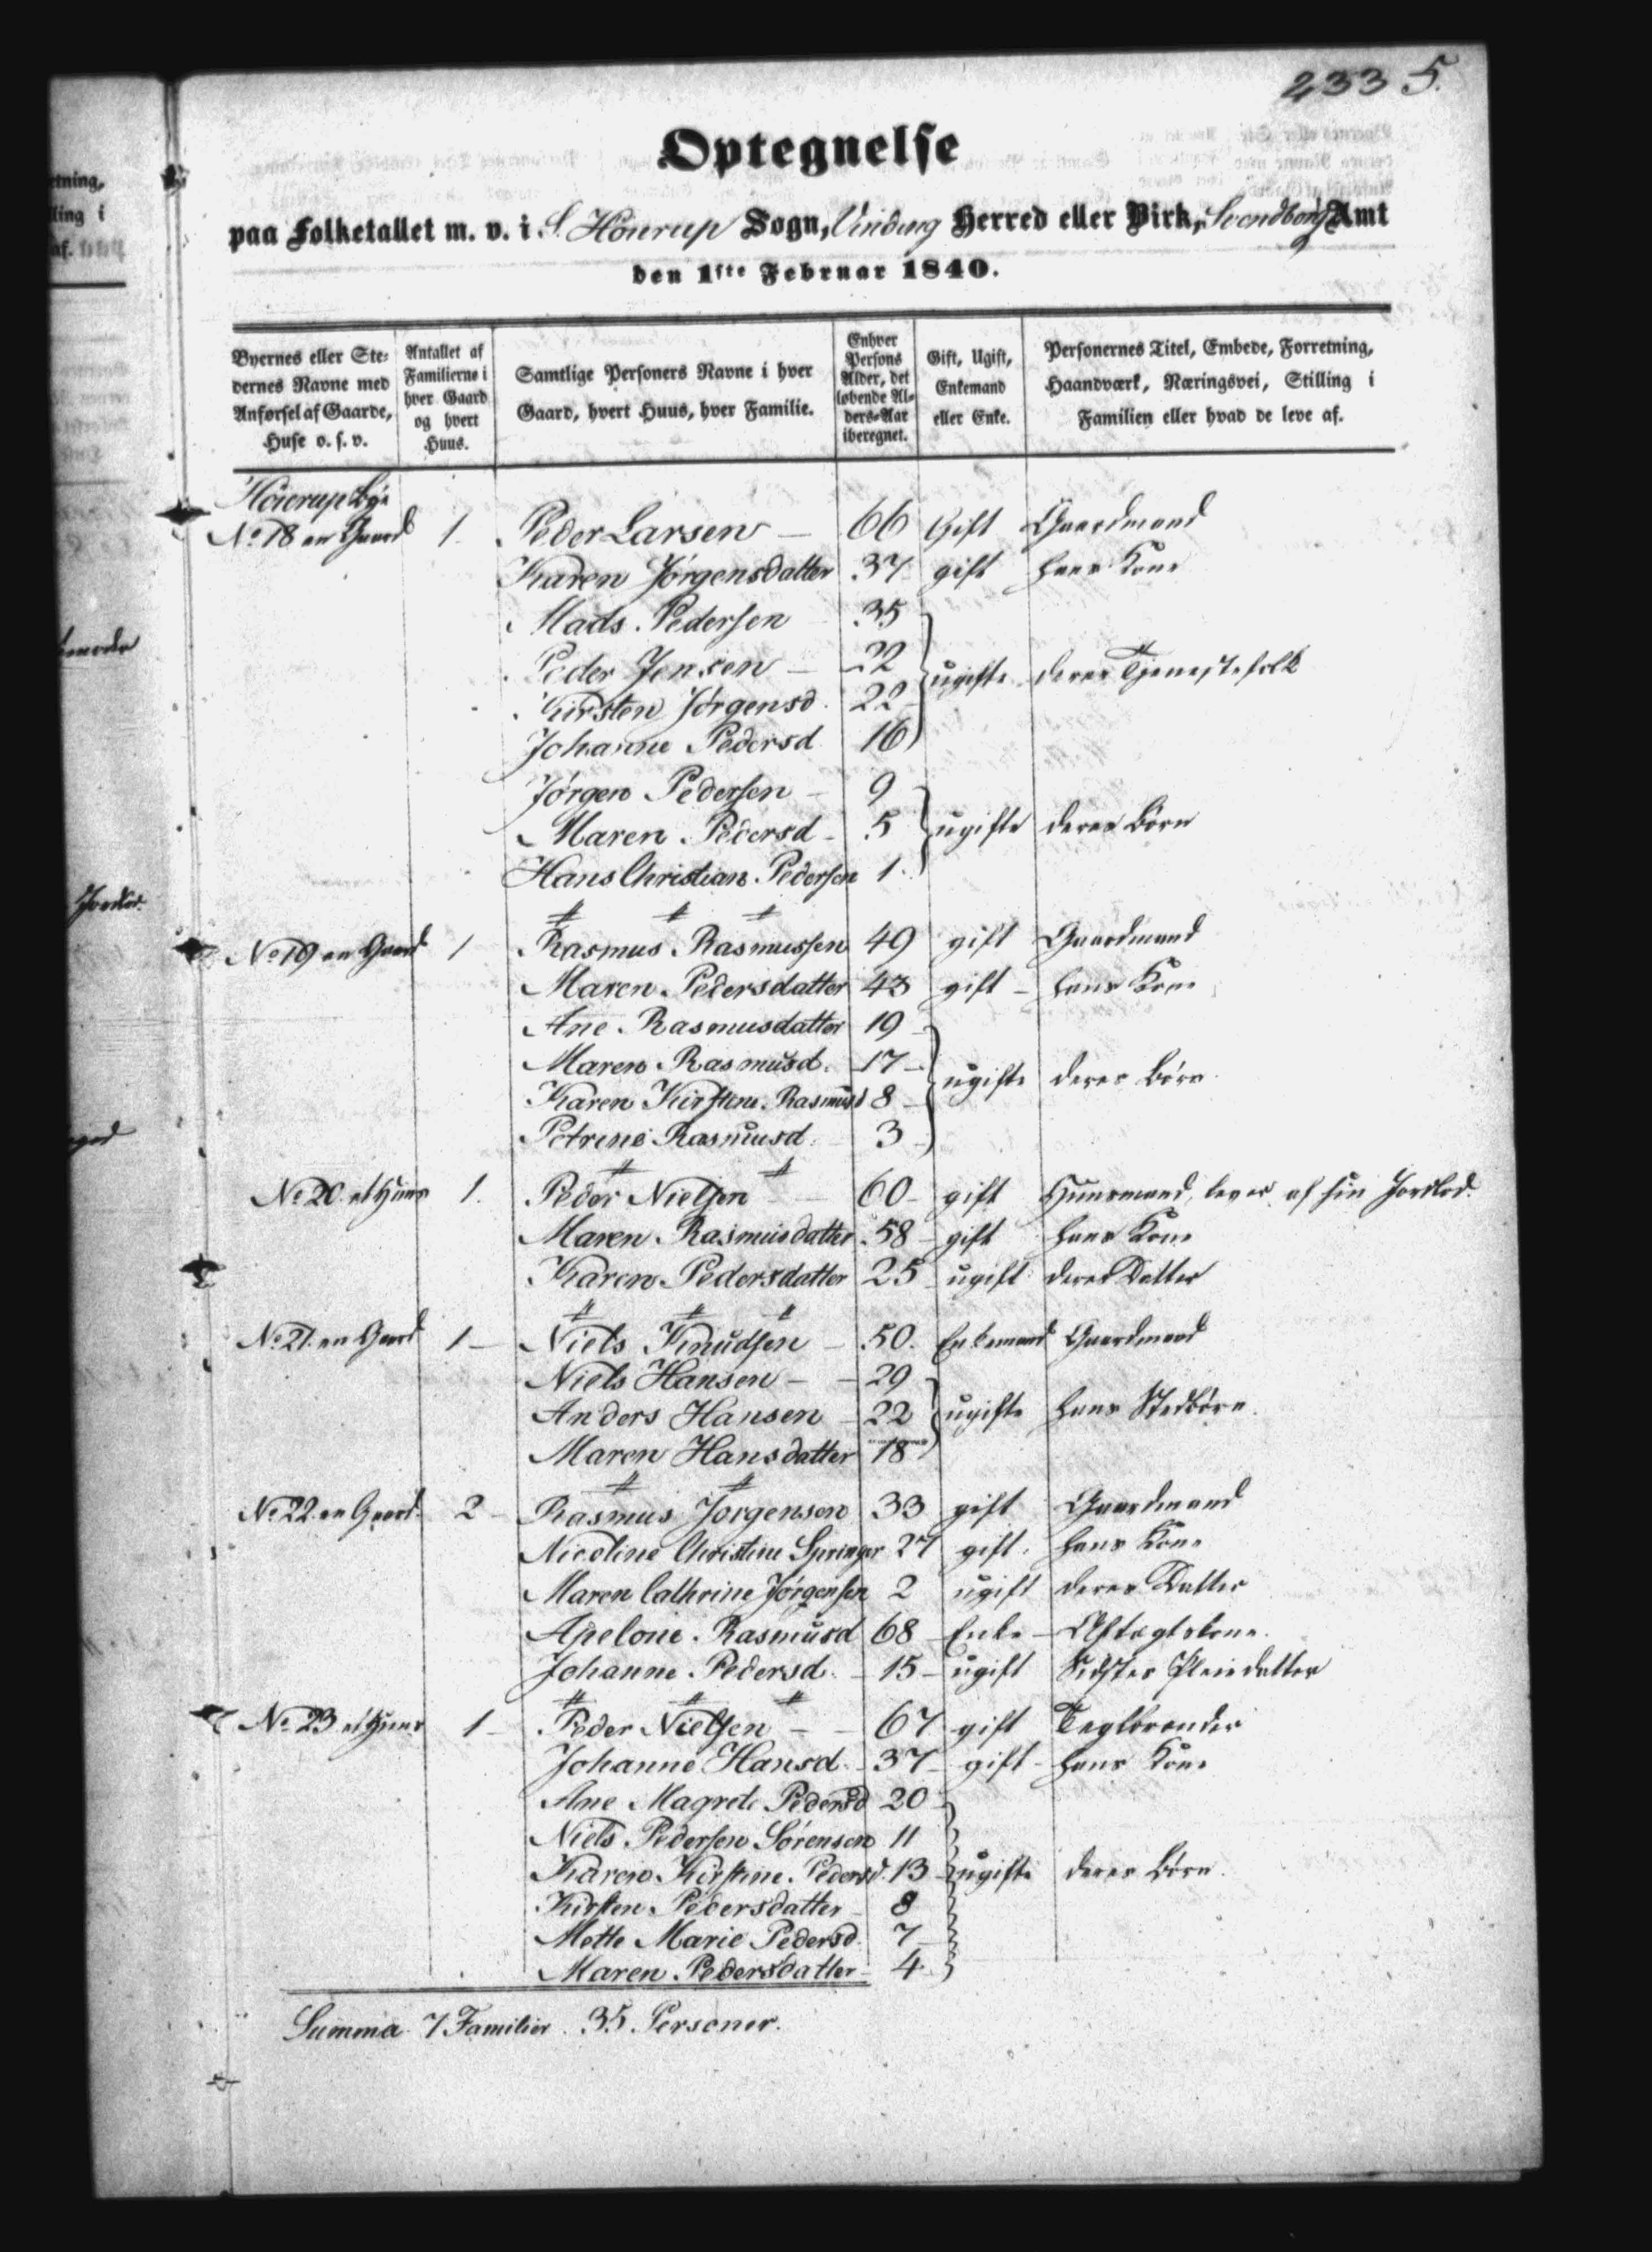 233 5.
Optegnelse
paa Folketallet m. v. i S. Höierup Sogn, Vinding Herred eller Birk, Svendborg Amt
den 1ste Februar 1840.
Byernes eller Ste-
dernes Navne med
Anførsel af Gaarde,
Huse o. s. v.
Antallet af
Familierne i
hver Gaard
og hvert
Huus.
Samtlige Personers Navne i hver
Gaard, hvert Huus, hver Familie.
Enhver
Persons
Alder, det
løbende Al-
ders-Aar
iberegnet.
Gift, Ugift,
Enkemand
eller Enke.
Personernes Titel, Embede, Forretning,
Haandværk, Næringsvei, Stilling i
Familien eller hvad de leve af.
Höierup Bye
No 18 en Gaard 1. Peder Larsen – 66 Gift Gaardmand
Karen Jørgensdatter 37 gift hans Kone
Mads Pedersen 35
Peder Jensen – 22 ugifte deres Tjenestefolk
Kirsten Jørgensd. 22
Johanne Pedersd 16
Jørgen Pedersen – 9
Maren Pedersd – 5 ugifte deres Børn
Hans Christian Pedersen 1.
No 19 en Gaard 1 Rasmus Rasmussen 49 gift Gaardmand
Maren Pedersdatter 43 gift – hans Kone
Ane Rasmusdatter 19
Maren Rasmusd. 17 ugifte deres Børn
Karen Kirstine Rasmusd 8
Petrine Rasmusd. 3
No 20 et Huus 1. Peder Nielsen – 60 – gift Huusmand, lever af sin Jordlod.
Maren Rasmusdatter 58 – gift hans Kone
Karen Pedersdatter 25 ugift deres Datter
No 21. en Gaard 1 – Niels Knudsen – 50. Enkemand Gaardmand
Niels Hansen – – 29
Anders Hansen – 22 ugifte hans Stedbørn.
Maren Hansdatter 18
No 22 en Gaard. 2 – Rasmus Jørgensen 33 gift Gaardmand
Nicoline Christine Springer 27 gift. hans Kone
Maren Cathrine Jørgensen 2 ugift deres Datter
Apelone Rasmusd 68 – Enke – Aftægtskone.
Johanne Pedersd. – 15 – ugift Pleiedatter
No 23 et Huus 1 – Peder Nielsen – – 67 gift Teglbrender
Johanne Hansd. – 37 – gift – hans Kone
Ane Magrete Pedersd 20
Niels Pedersen Sörensen 11
Karen Kirstine Pedersd. 13 ugifte deres Børn.
Kirsten Pedersdatter – 8
Mette Marie Pedersd. 7
Maren Pedersdatter – 4
Summa 7 Familier. 35. Personer.